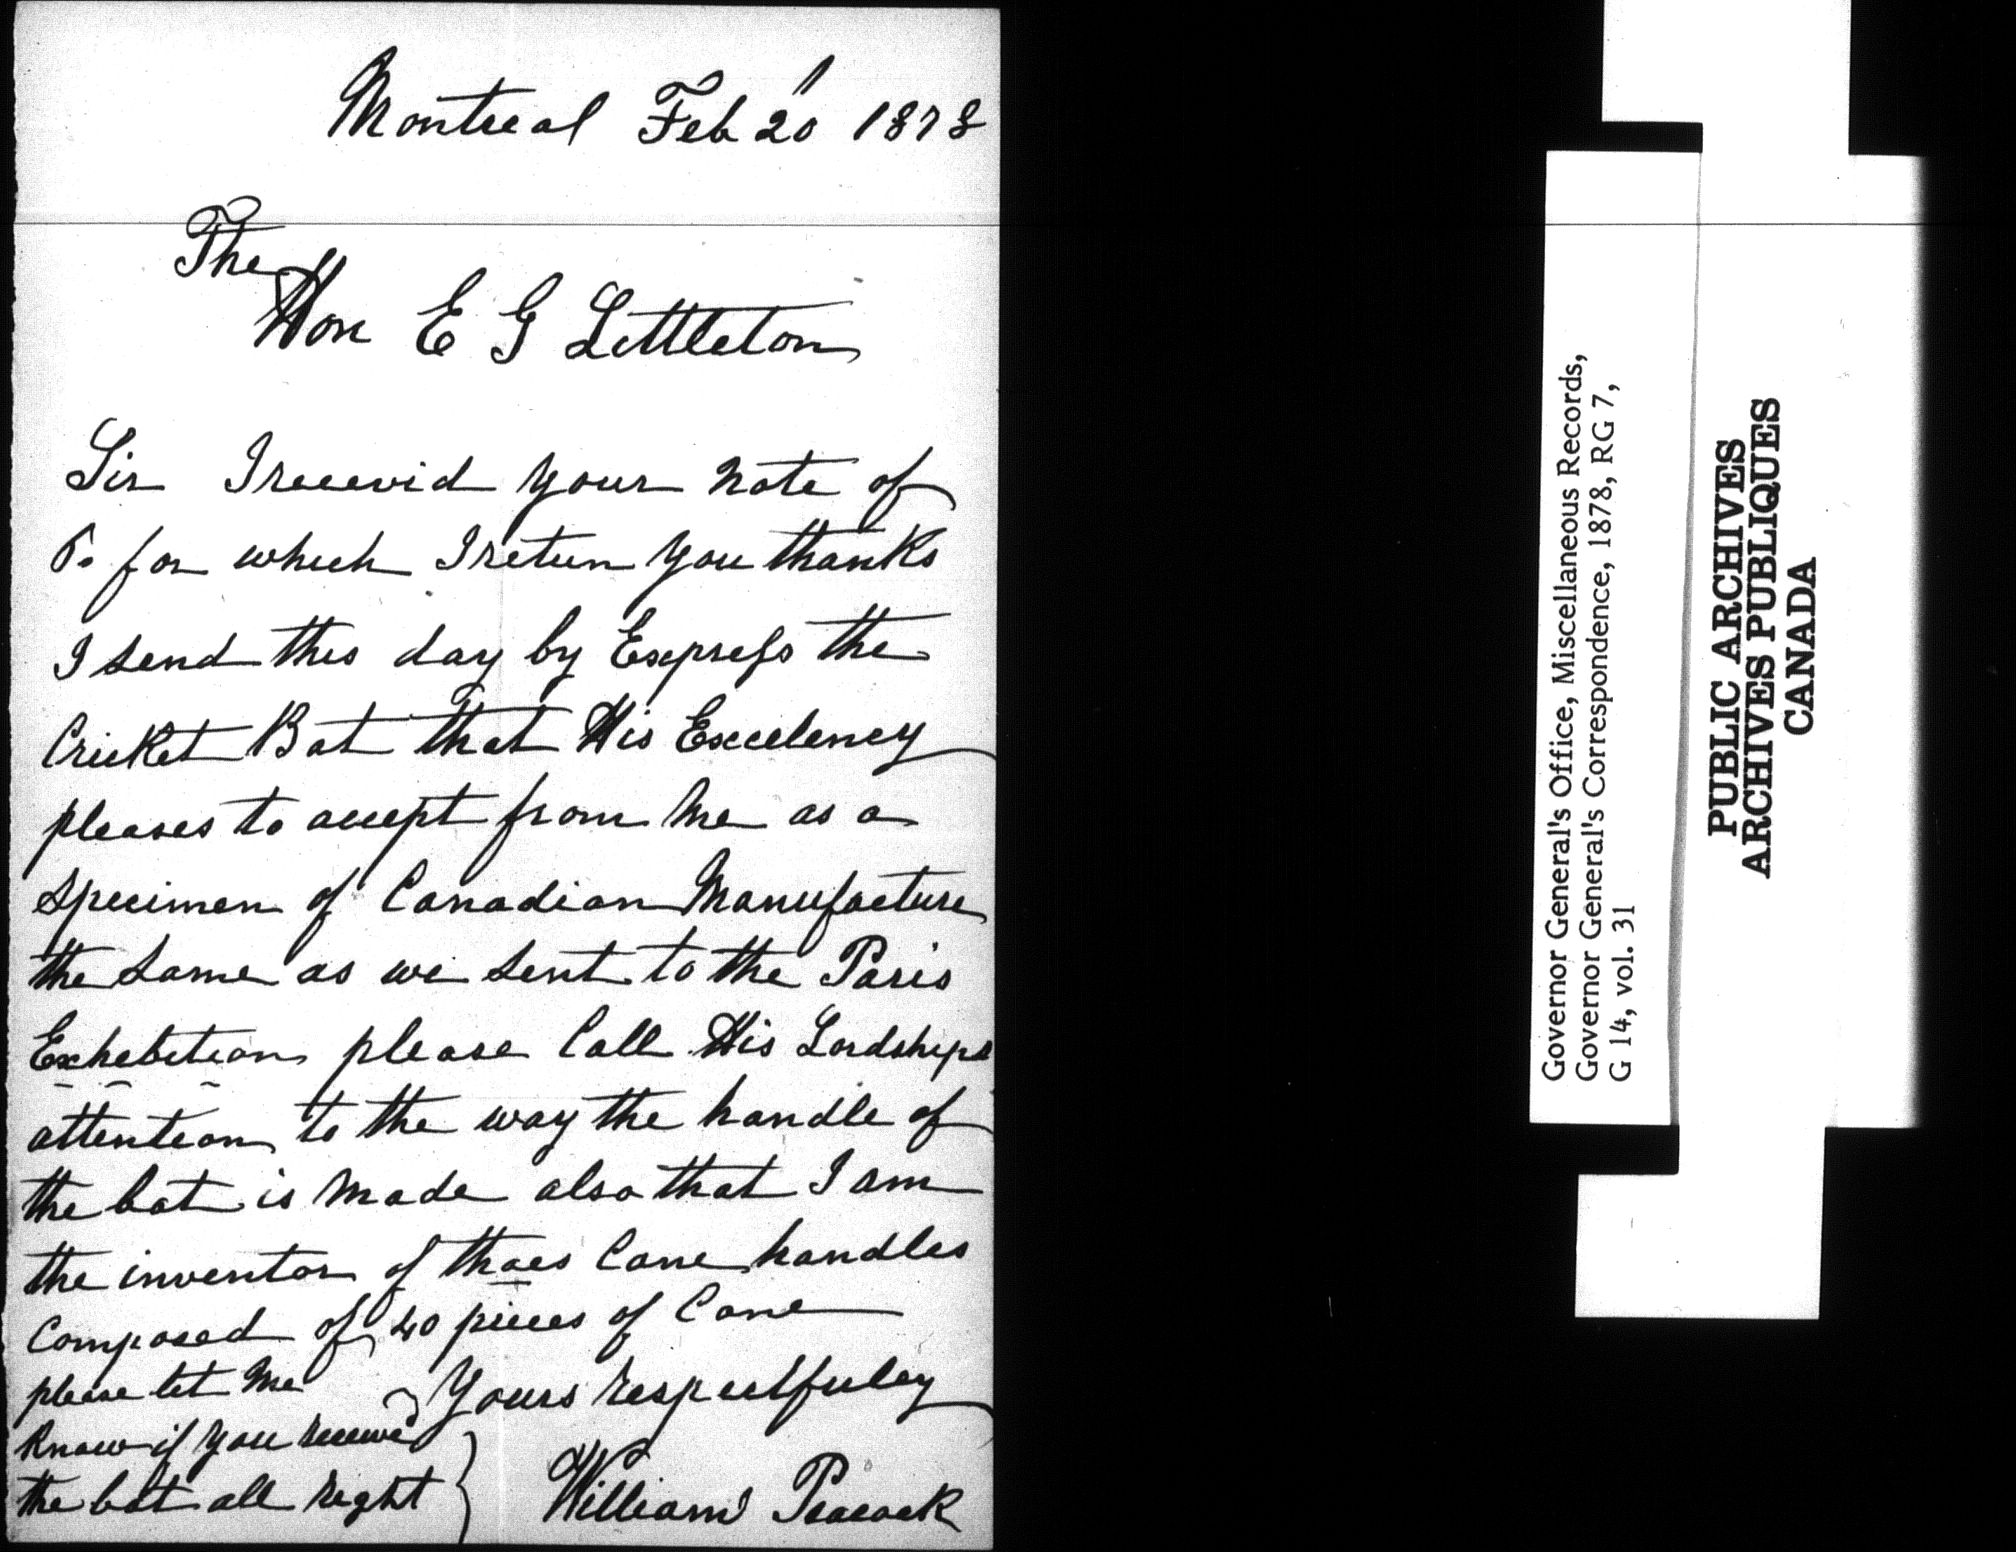 Montreal Feb 20 1878
The
Hon E G Littleton
Sir I receevid your note of
for which I return you thanks
I send this day by Express the
Cricket Bat that His Excelency
pleases to accept from me as a
specimen of Canadian Manufacture
the same as we sent to the Paris
Exhebition please Call His Lordships
attention to the way the handle of
the bat is made also that I am
the inventor of thoes Cane handles
Composed of 40 pieces of Cane
please let me
Know if you receive
the bat all right
Yours respectfuley
William Peacock
Governor General's Office, Miscellaneous Records,
Governor General's Correspondence, 1878, RG 7,
G 14, vol. 31
PUBLIC ARCHIVES
ARCHIVES PUBLIQUES
CANADA